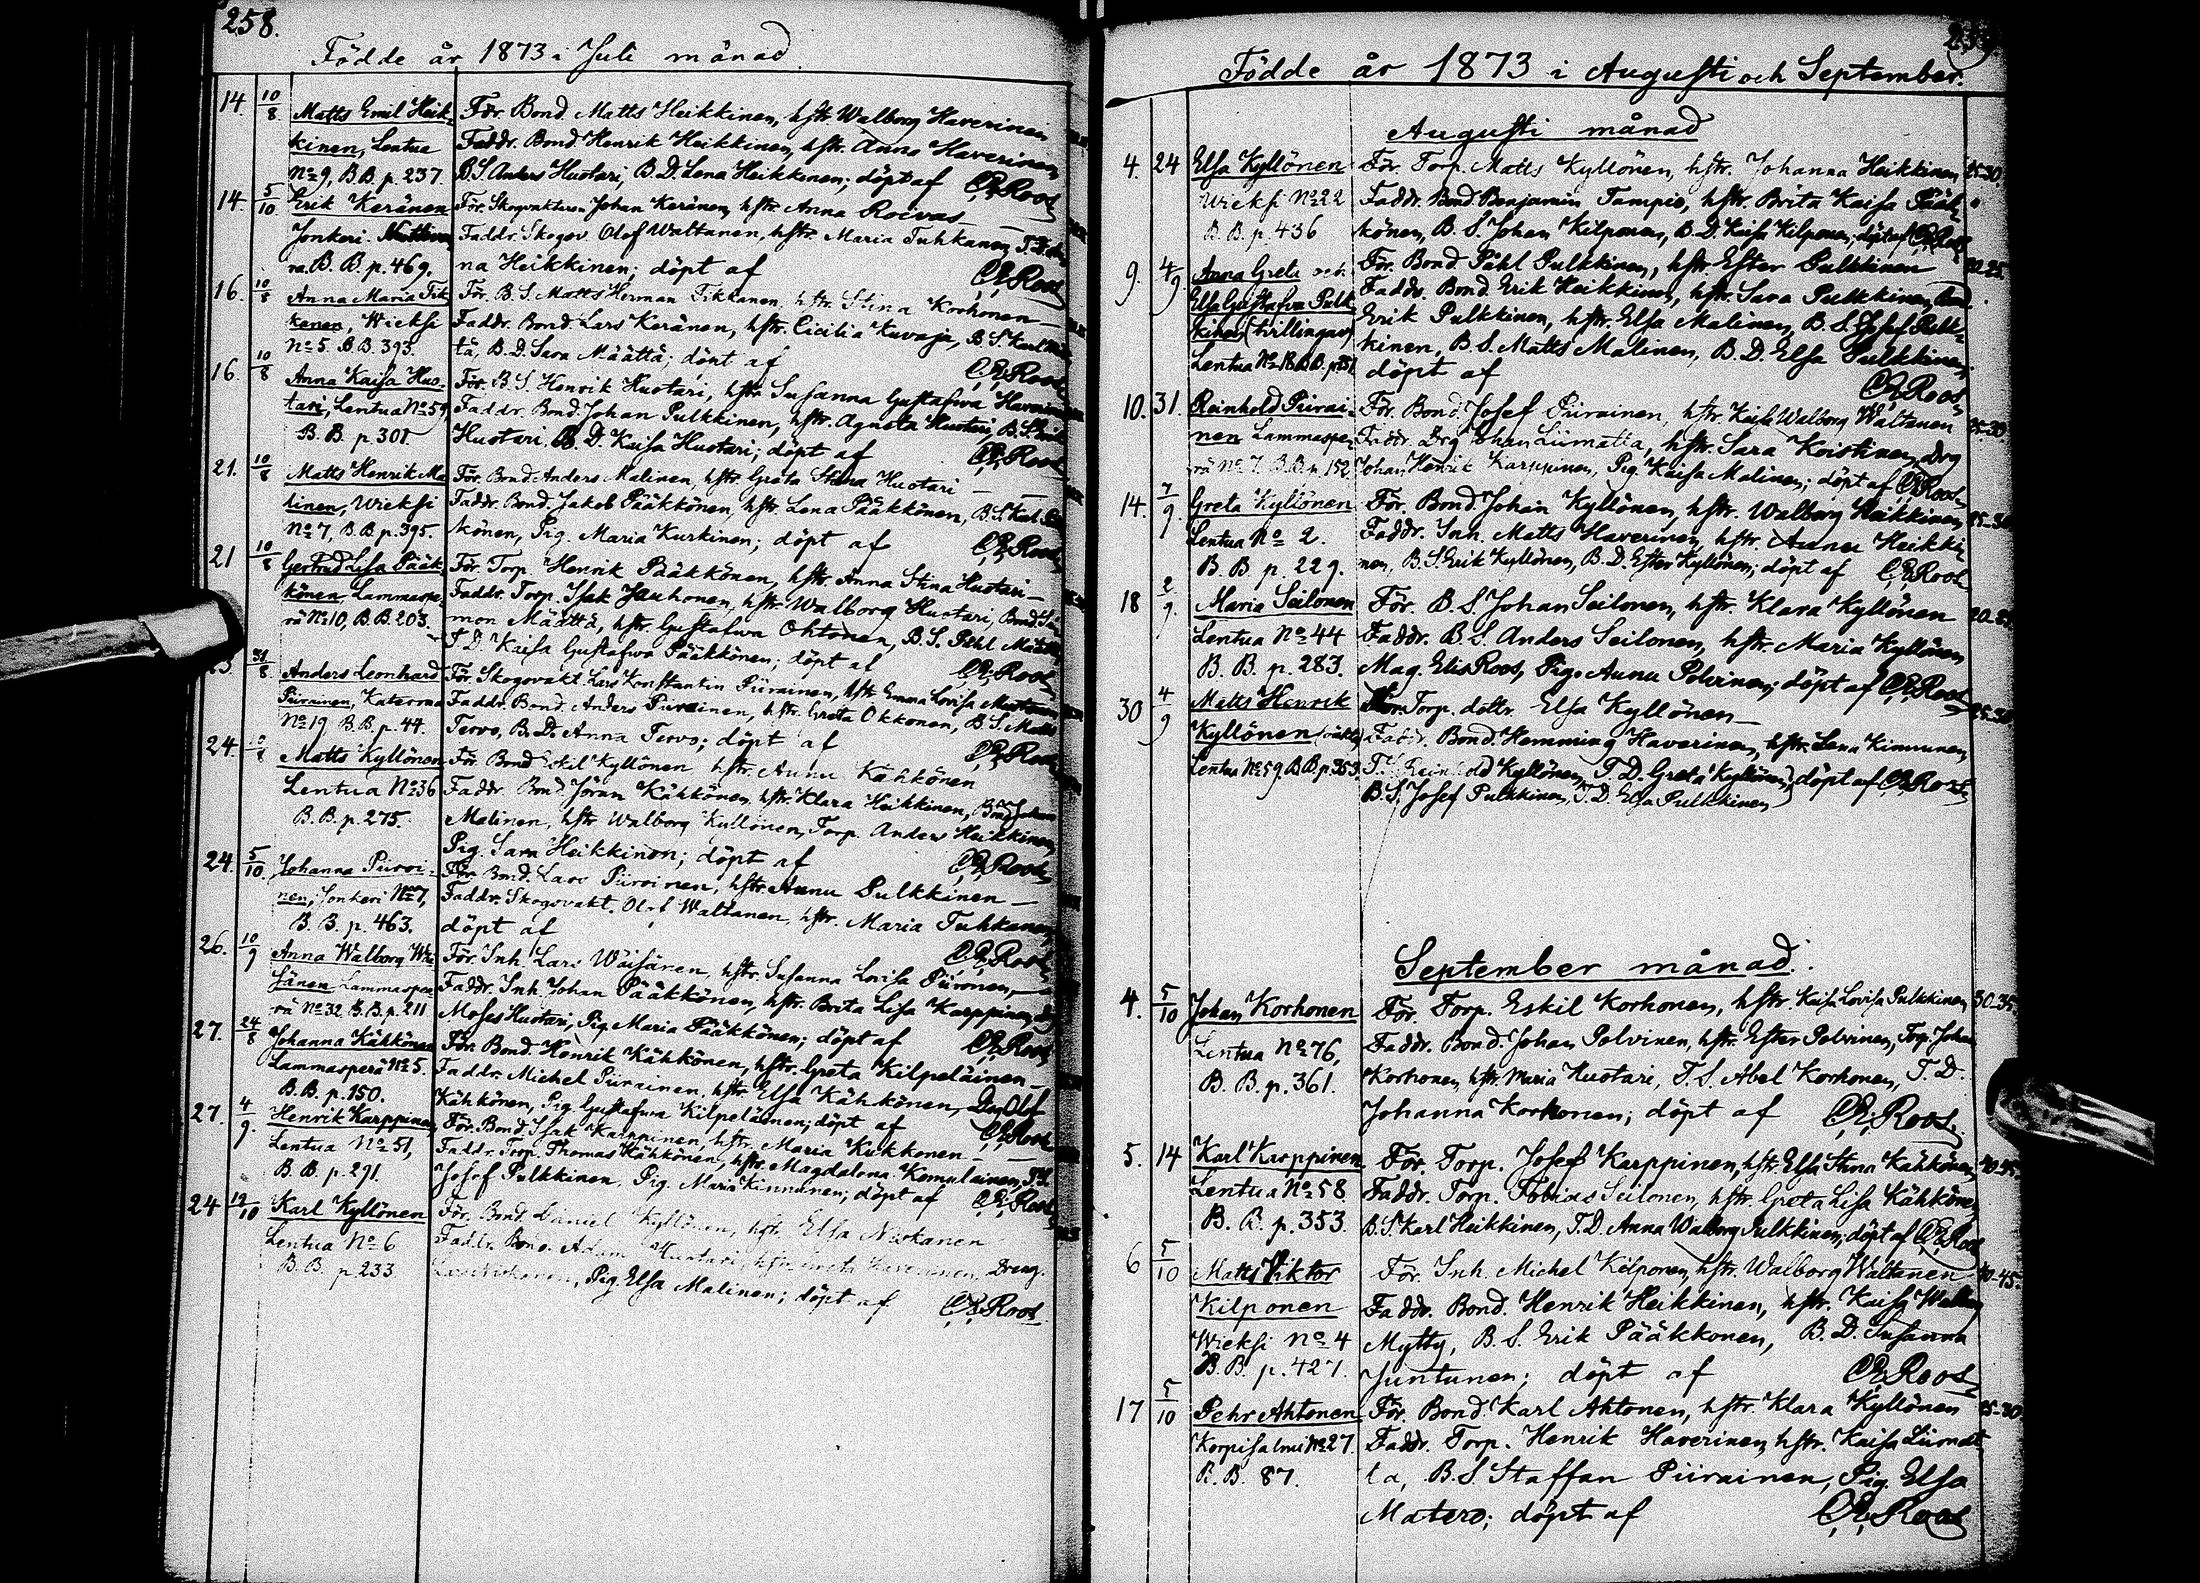 258.
Födde år 1873 i Juli månad.
14. 10/8 Matts Emil Heik- För. Bond. Matts Heikkinen, hstr Walborg Haverinen
kinen, Lentua Faddr. Bond. Henrik Heikkinen, hstr. Anna Haverinen,
No 9, B.B. p. 237. B.S. Anders Huotari, B.D. Lena Heikkinen; döpt af C.E. Roos
14. 5/10 Erik Keränen För. Skogvaktaren Johan Keränen, hstr. Anna Roivas
Jonkeri Faddr. Skogv. Olof Waltanen, hstr. Maria Tuhkanen,
B.B. p. 469. na Heikkinen; döpt af C.E. Roos
16. 10/8 Anna Maria Tik- För. B.S. Matts Herman Tikkanen, hstr. Stina Korhonen
kanen, Wieksi Faddr. Bond. Lars Keränen, hstr. Cicilia Kuvaja, B.S. Karl
No 5. B.B. 393. tä, B.D. Sara Määttä; döpt af C.E. Roos
16. 10/8 Anna Kaisa Huo- För. B.S. Henrik Huotari, hstr Susanna Gustafwa Haverinen
tari, Lentua No 59, Faddr. Bond. Johan Pulkkinen, hstr. Agneta Huotari, B.S.
B.B. p. 301. Huotari, B.D. Kaisa Huotari; döpt af C.E. Roos
21. 10/8 Matts Henrik Ma- För. Bond Anders Malinen, hstr Greta Stina Huotari
linen, Wieksi Faddr. Bond. Jakob Pääkkönen, hstr. Lena Pääkkönen, B.S. Karl
No 7, B.B. p. 395. könen, Pig. Maria Kurkinen; döpt af C.E. Roos
21 10/8 Gertrud Lisa Pääk- För Torp. Henrik Pääkkönen, hstr. Anna Stina Huotari
könen Lammaspe- Faddr. Torp. Isak Jauhonen, hstr Walborg Huotari, Bond. Si-
rä No 10, B.B. 203. mon Määttä, hstr. Gustafwa Ohtonen, B.S. Påhl Määttä,
T.D. Kaisa Gustafwa Pääkkönen; döpt af C.E. Roos
31/8 Anders Leonhard För. Skogvakt. Lars Konstantin Piirainen, hstr Emma Lovisa
Piirainen, Katerma Faddr. Bond. Anders Piirainen, hstr. Greta Okkonen, B.S. Matts
No 19 B.B. p. 44. Tervo, B.D. Anna Tervo; döpt af C.E. Roos
24. Matts Kyllönen För Bond Eskil Kyllönen hstr. Anna Kähkönen
Lentua No 36 Faddr. Bond. Jöran Kähkönen, hstr. Klara Heikkinen, Bond Johan
B.B. p. 275. Malinen, hstr Walborg Kyllönen, Torp. Anders Heikkinen,
Pig. Sara Heikkinen; döpt af C.E. Roos
24. 5/10 Johanna Piiroi- För Bond. Lars Piiroinen, hstr Anna Pulkkinen
nen, Jonkeri No 7, Faddr. Skogvakt. Olof Waltanen, hstr. Maria Tuhkanen,
B.B. p. 463. döpt af C.E. Roos
26. 10/9 Anna Walborg Wäi- För. Inh. Lars Wäisänen, hstr. Susanna Lovisa Piironen,
sänen Lammaspe- Faddr. Inh. Johan Pääkkönen, hstr. Brita Lisa Karppinen, Drg
rä No 32 B.B. p. 211 Moses Huotari, Pig. Maria Pääkkönen; döpt af C.E. Roos
27. 24/8 Johanna Kähkönen För. Bond. Henrik Kähkönen, hstr. Greta Kilpeläinen
Lammasperä No 5. Faddr. Michel Piirainen, hstr Elsa Kähkönen, Drg Olof
B.B. p. 150. Kähkönen, Pig. Gustafwa Kilpeläinen; döpt af C.E. Roos
27. 4/9. Henrik Karppinen För. Bond Isak Karppinen, hstr. Maria Kukkonen
Lentua No 51, Faddr. Torp. Thomas Kähkönen, hstr. Magdalena Komulainen, T.S.
B.B. p. 291. Josef Pulkkinen, Pig. Maria Kinnunen; döpt af C.E. Roos
24 12/10 Karl Kyllönen För. Bond. Daniel Kyllönen, hstr. Elsa Niskanen
Lentua No 6 Faddr. Bond. Adam Huotari, hstr. Greta Haverinen, Dreng.
B.B. p 233. Lars Niskanen, Pig. Elsa Malinen; döpt af C.E. Roos
Födde år 1873 i Augusti och September.
Augusti månad
4. 24 Elsa Kyllönen För. Torp. Matts Kyllönen, hstr. Johanna Heikkinen 25-30.
Wieksi No 22 Faddr. Bond Benjamin Tampio, hstr. Brita Kaisa Pääk-
B.B. p. 436 könen, B.S. Johan Kilponen, B.D. Kaisa Kilponen; döpt af C.E. Roos
9. 4/9 Anna Greta och För. Bond Påhl Pulkkinen, hstr. Ester Pulkkinen 20-25.
Elsa Gustafwa Pulk- Faddr. Bond. Erik Heikkinen, hstr. Sara Pulkkinen, Bond.
kinen (tvillingar) Erik Pulkkinen, hstr. Elsa Malinen, B.S. Josef Pulk-
Lentua No 18 B.B. p. kinen, B.S. Matts Malinen, B.D. Elsa Pulkkinen;
döpt af C.E. Roos
10. 31. Reinhold Piirai- För. Bond Josef Piirainen, hstr. Kaisa Walborg Waltanen 25-30.
nen Lammaspe- Faddr. Drg Johan Liimatta, hstr. Sara Koistinen, Drg
rä No 7. B.B. p. 152 Johan Henrik Karppinen, Pig. Kaisa Malinen; döpt af C.E. Roos
14. 7/9 Greta Kyllönen För. Bond. Johan Kyllönen, hstr. Walborg Heikkinen, 25-30
Lentua No 2. Faddr. Inh. Matts Haverinen, hstr. Anna Heikki-
B.B. p. 229. nen, B.S. Erik Kyllönen, B.D. Ester Kyllönen; döpt af C.E. Roos
18 2/9. Maria Seilonen För. B.S. Johan Seilonen, hstr. Klara Kyllönen
Lentua No 44 Faddr. B.S. Anders Seilonen, hstr. Maria Kyllönen,
B.B. p. 283. Mag. Elis Roos, Pig. Anna Polvinen; döpt af C.E. Roos
30 4/9 Matts Henrik För. Torp. dottr. Elsa Kyllönen 25-30.
Kyllönen (oäkta) Faddr. Bond. Hemming Haverinen, hstr. Lena Kinnunen,
Lentua No 59. B.B. p. 353. T.S. Reinhold Kyllönen, T.D. Greta Kyllönen, döpt af C.E. Roos
B.S. Josef Pulkkinen, T.D. Elsa Pulkkinen
September månad.
4. 5/10 Johan Korhonen För. Torp. Eskil Korhonen, hstr. Kaisa Lovisa Pulkkinen 30-35.
Lentua No 76, Faddr. Bond. Johan Polvinen, hstr. Ester Polvinen, Torp. Johan
B.B. p. 361. Korhonen, hstr. Maria Huotari, T.S. Abel Korhonen, T.D.
Johanna Korhonen; döpt af C.E. Roos.
5. 14 Karl Karppinen För. Torp. Josef Karppinen, hstr. Elsa Stina Kähkönen, 40-45.
Lentua No 58. Faddr. Torp. Tobias Seilonen, hstr. Greta Lisa Kähkönen,
B.B. p. 353. B.S. Karl Heikkinen, T.D. Anna Walborg Pulkkinen; döpt af C.E. Roos
6 5/10 Matts Viktor För. Inh. Michel Kilponen, hstr. Walborg Waltanen 40-45.
Kilponen Faddr. Bond. Henrik Heikkinen, hstr. Kaisa Walborg
Wieksi No 4 Mytty, B.S. Erik Pääkkonen, B.D. Susanna
B.B. p. 427. Juntunen; döpt af C.E. Roos
17 5/10 Pehr Ahtonen För. Bond. Karl Ahtonen, hstr. Klara Kyllönen 25-30
Korpisalmi No 27. Faddr. Torp. Henrik Haverinen, hstr. Kaisa Liimat-
B.B. 87. ta, B.S. Staffan Piirainen, Pig. Elsa
Matero; döpt af C.E. Roos